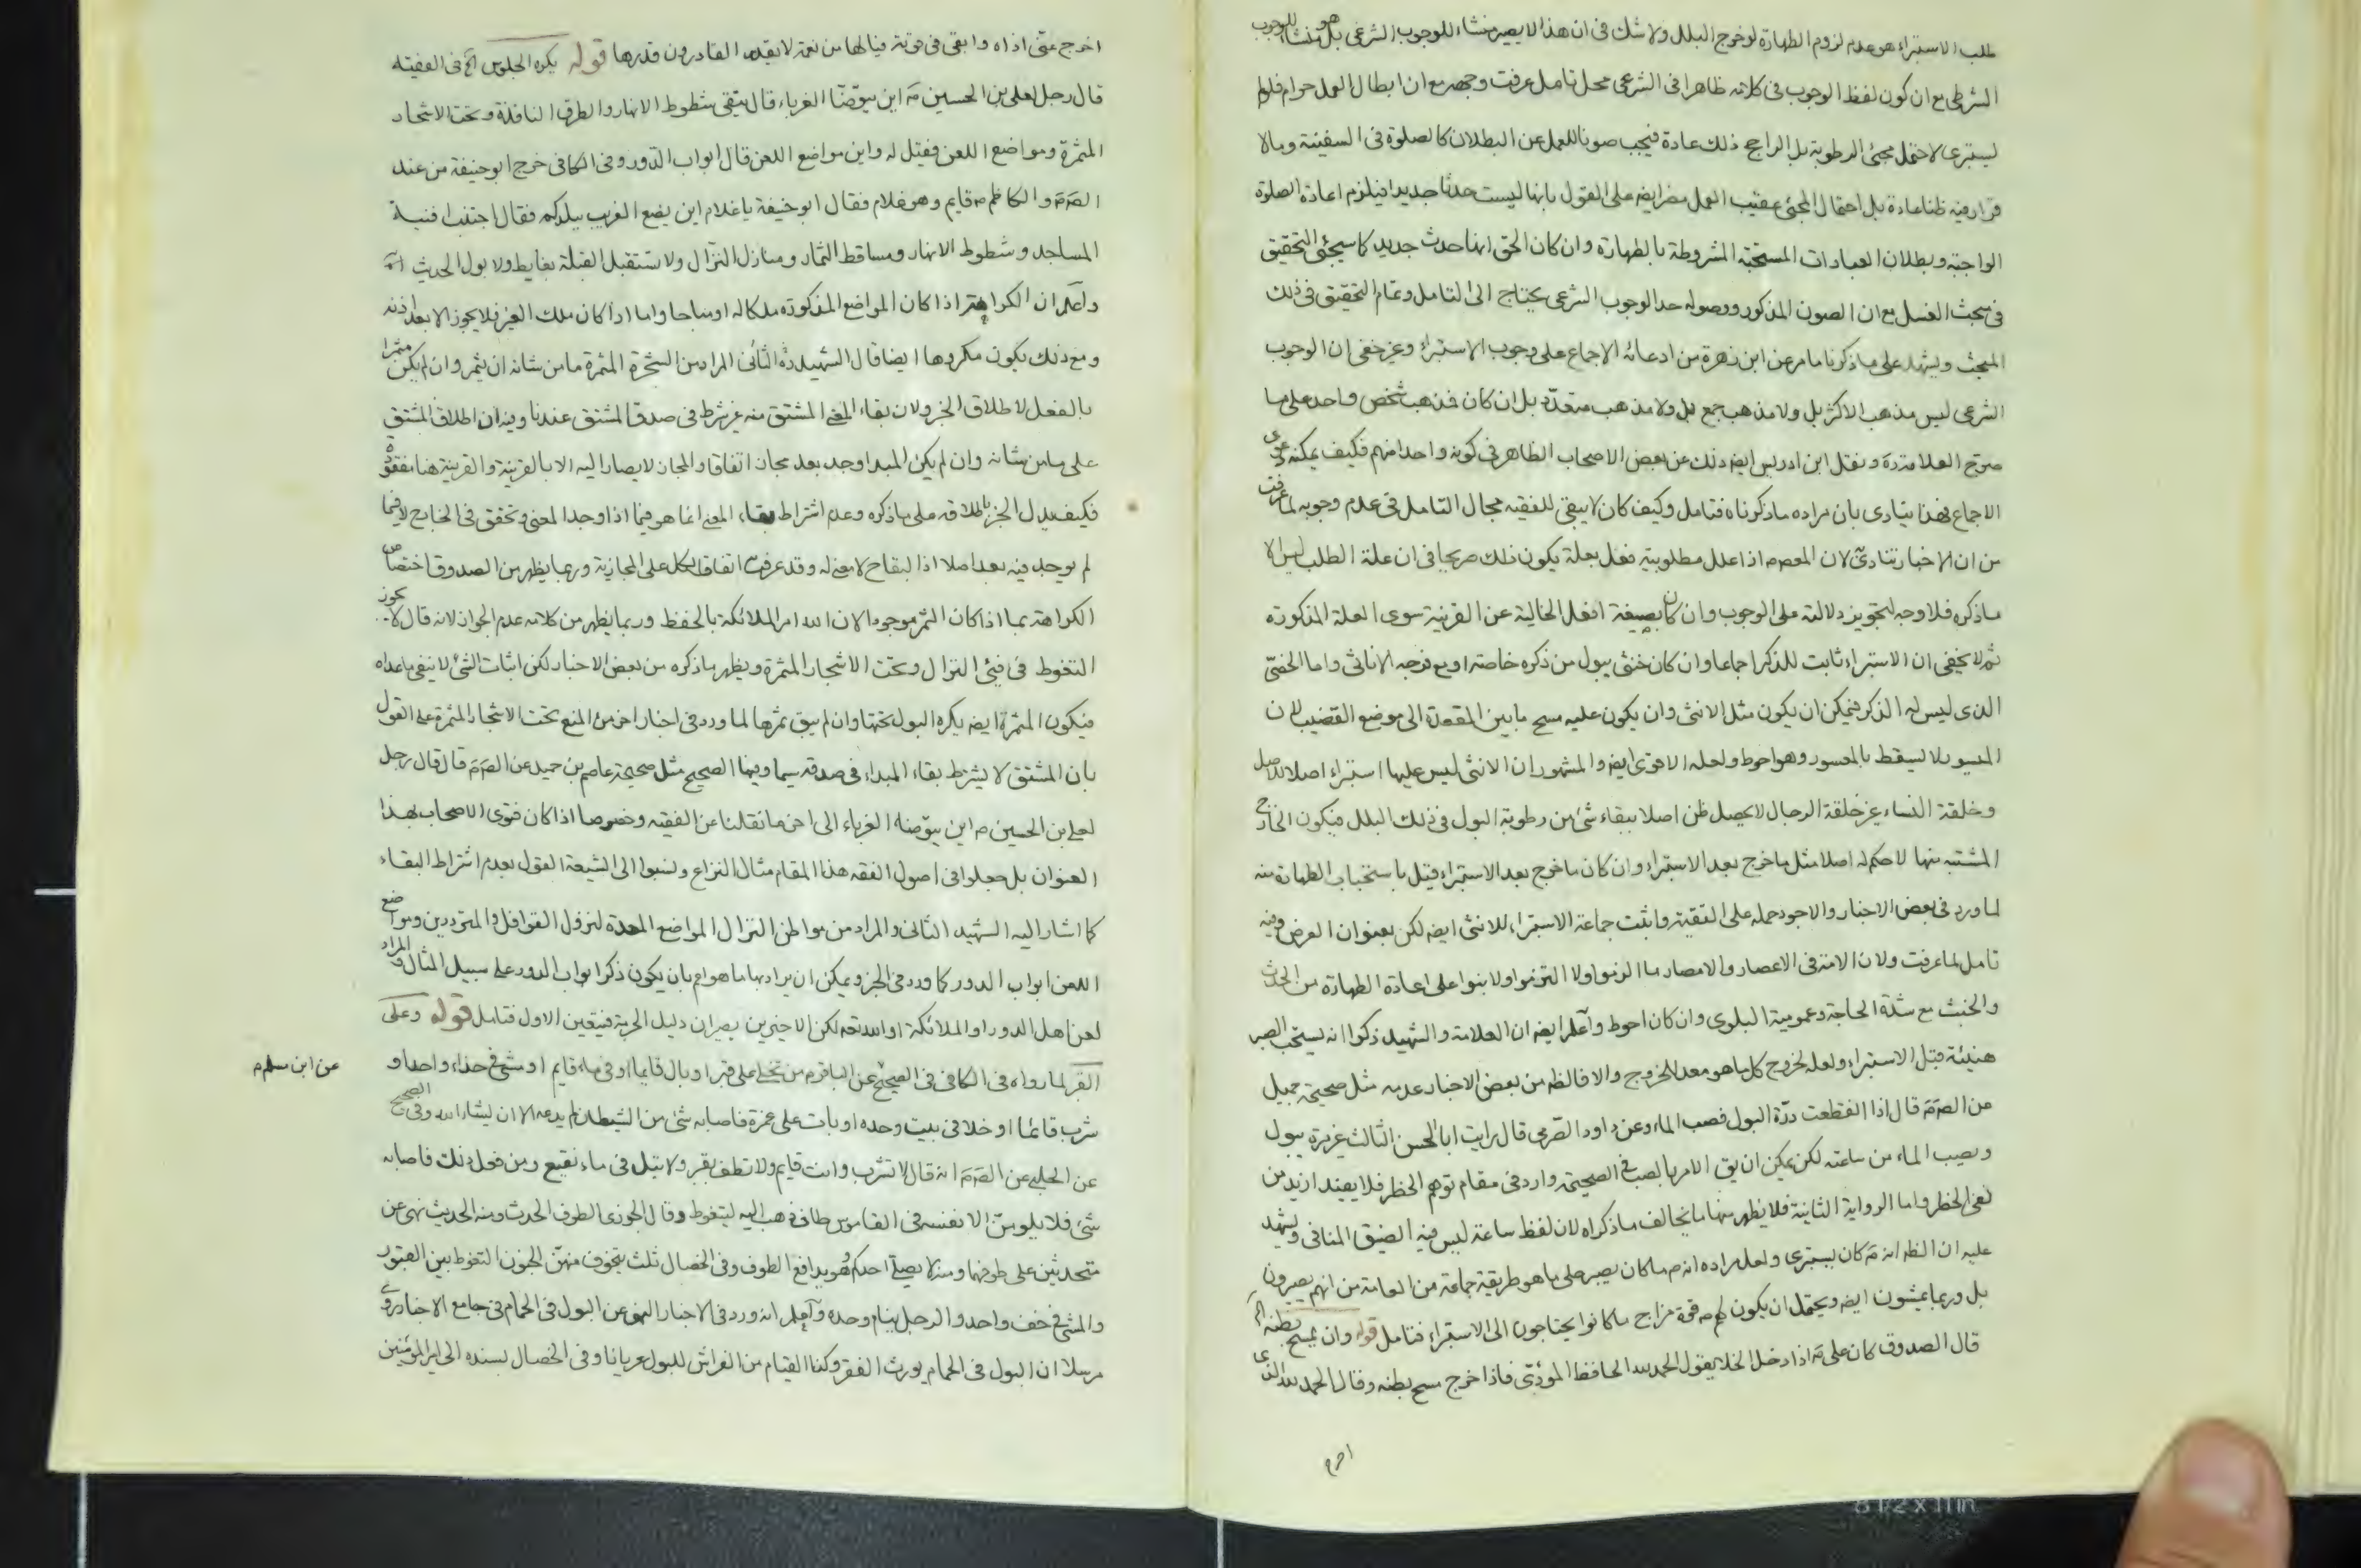 طلب الاستبراء هو عدم لزوم الطهارة لو خرج البلل ولا شك فى ان هذا لا يصير منشاء للوجوب الشرعى بل هو منشأ للوجوب
الشرطى مع ان كون لفظ الوجوب فى كلامه ظاهرا فى الشرعى محل تامل عرفت وجهه مع ان ابطال العمل حرام فلو لم
يستبرى لاحتمل مجئ الرطوبة بل الراجح ذلك عادة فيجب صونا للعمل عن البطلان كالصلوة فى السفينة وما لا
قرار فيه ظنا عادة بل احتمال المجئ عقيب العمل مضر ايضه على القول بانها ليست حدثا جديدا فيلزم اعادة الصلوة
الواجبة وبطلان العبادات المستحبة المشروطة بالطهارة وان كان الحق انها حدث جديد كما سيجئ التحقيق
فى مبحث الغسل مع ان الصون المذكور ووصوله حد الوجوب الشرعى يحتاج الى التامل وتمام التحقيق فى ذلك
المبحث ويشهد على ما ذكرنا ما مر عن ابن زهرة من ادعائه الاجماع على وجوب الاستبراء وغير خفى ان الوجوب
الشرعى ليس مذهب الاكثر بل ولا مذهب جمع بل ولا مذهب متعدّد بل ان كان فمذهب شخص واحد على ما
صرّح العلامة ره ونقل ابن ادريس ايضه ذلك عن بعض الاصحاب الظاهر فى كونه واحدا منهم فكيف يمكنه دعوى
الاجماع فهذا ينادى بان مراده ما ذكرناه فتامل وكيف كان لا يبقى للفقيه مجال التامل فى عدم وجوبه لما عرفت
من ان الاخبار تنادى لان المعصوم اذا علل مطلوبية فعل بعلة يكون ذلك صريحا فى ان علة الطلب ليس الا
ما ذكره فلا وجه لتجويز دلالته على الوجوب وان كان بصيغة افعل الخالية عن القرينة سوى العلة المذكورة
ثم لا يخفى ان الاستبراء ثابت للذكر اجماعا وان كان خنثى يبول من ذكره خاصة او مع فرجه الاناثى واما الخصىّ
الذى ليس له الذكر فيمكن ان يكون مثل الانثى وان يكون عليه مسح ما بين المقعدة الى موضع القضيب لان
الميسور لا يسقط بالمعسور وهو احوط ولعله الاقوى ايضه والمشهور ان الانثى ليس عليها استبراء اصلا للاصل
وخلقة النساء غير خلقة الرجال لا يحصل ظن اصلا ببقاء شئ من رطوبة البول فى ذلك البلل فيكون الخارج
المشتبه منها لا حكم له اصلا مثل ما خرج بعد الاستبراء وان كان ما خرج بعد الاستبراء قيل باستحباب الطهارة منه
لما ورد فى بعض الاخبار والاجود حمله على التقية واثبت جماعة الاستبراء للانثى ايضه لكن بعنوان العرض وفيه
تامل لما عرفت ولان الامة فى الاعصار والامصار ما الزموا ولا التزموا ولا بنوا على اعادة الطهارة من الحدث
والخبث مع شدّة الحاجة وعمومية البلوى وان كان احوط واعلم ايضه ان العلامة والشهيد ذكرا انه يستحب الصبر
هنيئة قبل الاستبراء ولعله لخروج كل ما هو معد للخروج والا فالظه من بعض الاخبار عدمه مثل صحيحة جميل
عن الصّ ع قال اذا انقطعت درّة البول فصب الماء وعن داود الصّرمى قال رايت ابا الحسن الثالث غير مرة يبول
ويصب الماء من ساعته لكن يمكن ان يق الامر بالصب فى الصحيحة وارد فى مقام توهم الحظر فلا يفيد ازيد من
نفى الحظر واما الرواية الثانية فلا يظهر منها ما يخالف ما ذكراه لان لفظ ساعة ليس فيه الضيق المنافى ويشهد
عليه ان الظه انه ع كان يستبرى ولعل مراده انه م ما كان يصبر على ما هو طريقة جماعة من العامة من انهم يصبرون
بل وربما يمشون ايضه ويحتمل ان يكون لهم م قوة مزاج ما كانوا يحتاجون الى الاستبراء فتامل قوله وان يمسح بطنه الخ
قال الصدوق كان على ع اذا دخل الخلا يقول الحمد لله الحافظ المؤدّى فاذا خرج مسح بطنه وقال الحمد لله الذى
اخرج
اخرج عنّى اذاه وابقى فى قوته فيا لها من نعمة لا يقدر القادرون قدرها قوله يكره الجلوس الخ فى الفقيه
قال رجل لعلى بن الحسين ع اين يتوضّأ الغرباء قال يتقى شطوط الانهار والطرق النافذة وتحت الاشجار
المثمرة ومواضع اللعن فقيل له واين مواضع اللعن قال ابواب الدّور وفى الكافى خرج ابو حنيفة من عند
الصّ ع والكاظم م قايم وهو غلام فقال ابو حنيفة يا غلام اين يضع الغريب ببلدكم فقال اجتنب افنية
المساجد وشطوط الانهار ومساقط الثمار ومنازل النزّال ولا تستقبل القبلة بغايط ولا بول الحديث
واعلم ان الكراهة اذا كان المواضع المذكورة ملكا له او مباحا واما اذا كان ملك الغير فلا يجوز الا بعد اذنه
ومع ذلك يكون مكروها ايضا قال الشهيد ره الثانى المراد من الشجرة المثمرة ما من شانه ان يثمر وان لم يكن مثمرا
بالفعل لاطلاق الخبر ولان بقاء المعنى المشتق منه غير شرط فى صدق المشتق عندنا وفيه ان اطلاق المشتق
على ما من شانه وان لم يكن المبدا وجد بعد مجاز اتفاقا والمجاز لا يصار اليه الا بالقرينة والقرينة هنا مفقودة
فكيف يدل الخبر باطلاقه على ما ذكره وعدم اشتراط بقاء المعنى انما هو فيما اذا وجد المعنى وتحقق فى الخارج لا فيما
لم يوجد فيه بعد اصلا اذ البقاح لا معنى له وقد عرفت اتفاق الكل على المجازية وربما يظهر من الصدوق اختصاص
الكراهة بما اذا كان الثمر موجودا لان الله امر الملائكة بالحفظ وربما يظهر من كلامه عدم الجواز لانه قال لا يجوز
التغوط فى فيئ النزال وتحت الاشجار المثمرة ويظهر ما ذكره من بعض الاخبار لكن اثبات الشئ لا ينفى ما عداه
فيكون المثمرة ايضه يكره البول تحتها وان لم يبق ثمرها لما ورد فى اخبار اخر من المنع تحت الاشجار المثمرة على القول
بان المشتق لا يشترط بقاء المبداء فى صدقه سيما وفيها الصحيح مثل صحيحة عاصم بن حميد عن الصّ ع قال قال رجل
لعلى بن الحسين م اين يتوضّا الغرباء الى اخر ما نقلنا عن الفقيه وخصوصا اذا كان فتوى الاصحاب بهذا
العنوان بل جعلوا فى اصول الفقه هذا المقام مثال النزاع ونسبوا الى الشيعة القول بعدم اشتراط البقاء
كما اشار اليه الشهيد الثانى والمراد من مواطن النزال المواضع المعدة لنزول القوافل والمترددين ومواضع
اللعن ابواب الدور كما ورد فى الخبر ويمكن ان يراد بها ما هو اعم بان يكون ذكر ابواب الدور على سبيل المثال والمراد
لعن اهل الدور او الملائكة او الله تعه لكن الاخيرين يصيران دليل الحرمة فيتعين الاول فتامل قوله وعلى
القبر لما رواه فى الكافى فى الصحيح عن الباقر م من تخلى على قبر او بال قايما او فى ماء قايم او مشى فى حذاء واحد او
عن ابن مسلم م
شرب قائما او خلا فى بيت وحده او بات على غمرة فاصابه شئ من الشيطان لم يدعه الا ان يشاء الله وفى الصحيح
عن الحلبى عن الصّ ع انه قال لا تشرب وانت قايم ولا تطف بقبر ولا تبل فى ماء نقيع ومن فعل ذلك فاصابه
شئ فلا يلومنّ الا نفسه فى القاموس طاف ذهب اليه ليتغوط وقال الجوزى الطوف الحدث ومنه الحديث نهى عن
متحدثين على طوفهما ومنه لا يصلى احدكم وهو يدافع الطوف وفى الخصال ثلث يتخوف منهنّ الجنون التغوط بين القبور
والمشى فى خف واحد والرجل ينام وحده واعلم انه ورد فى الاخبار النهى عن البول فى الحمام فى جامع الاخبار روى
مرسلا ان البول فى الحمام يورث الفقر وكذا القيام من الفراش للبول عريانا وفى الخصال بسنده الى امير المؤمنين
8 1/2 x 11 in